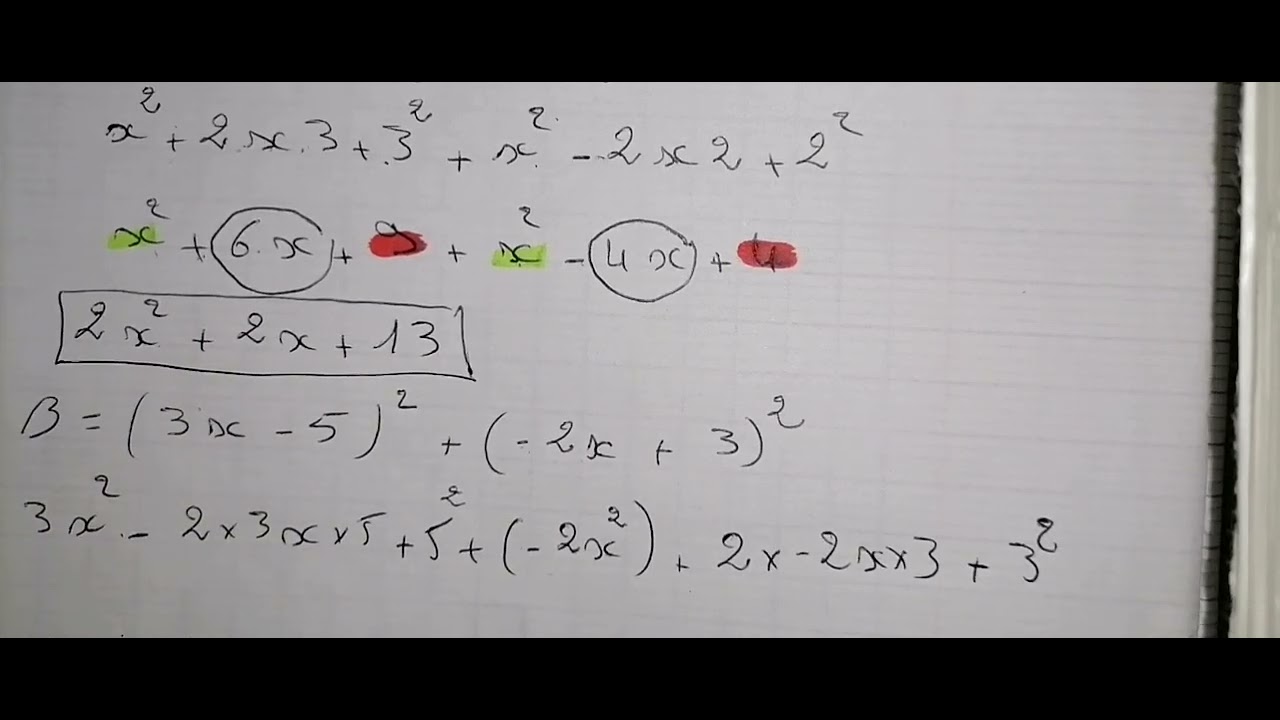 x² + 2x.3 + 3² + x² - 2x2 + 2²
x² + 6x + 9 + x² - 4x + 4
2x² + 2x + 13
B = (3x - 5)² + (-2x + 3)²
3x² - 2×3x×5 + 5² + (-2x²) + 2×-2x×3 + 3²